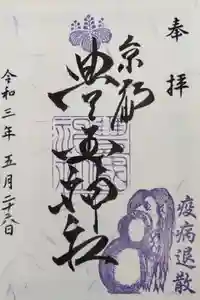 奉拝
疫病退散
京都
豊国神社
令和三年五月